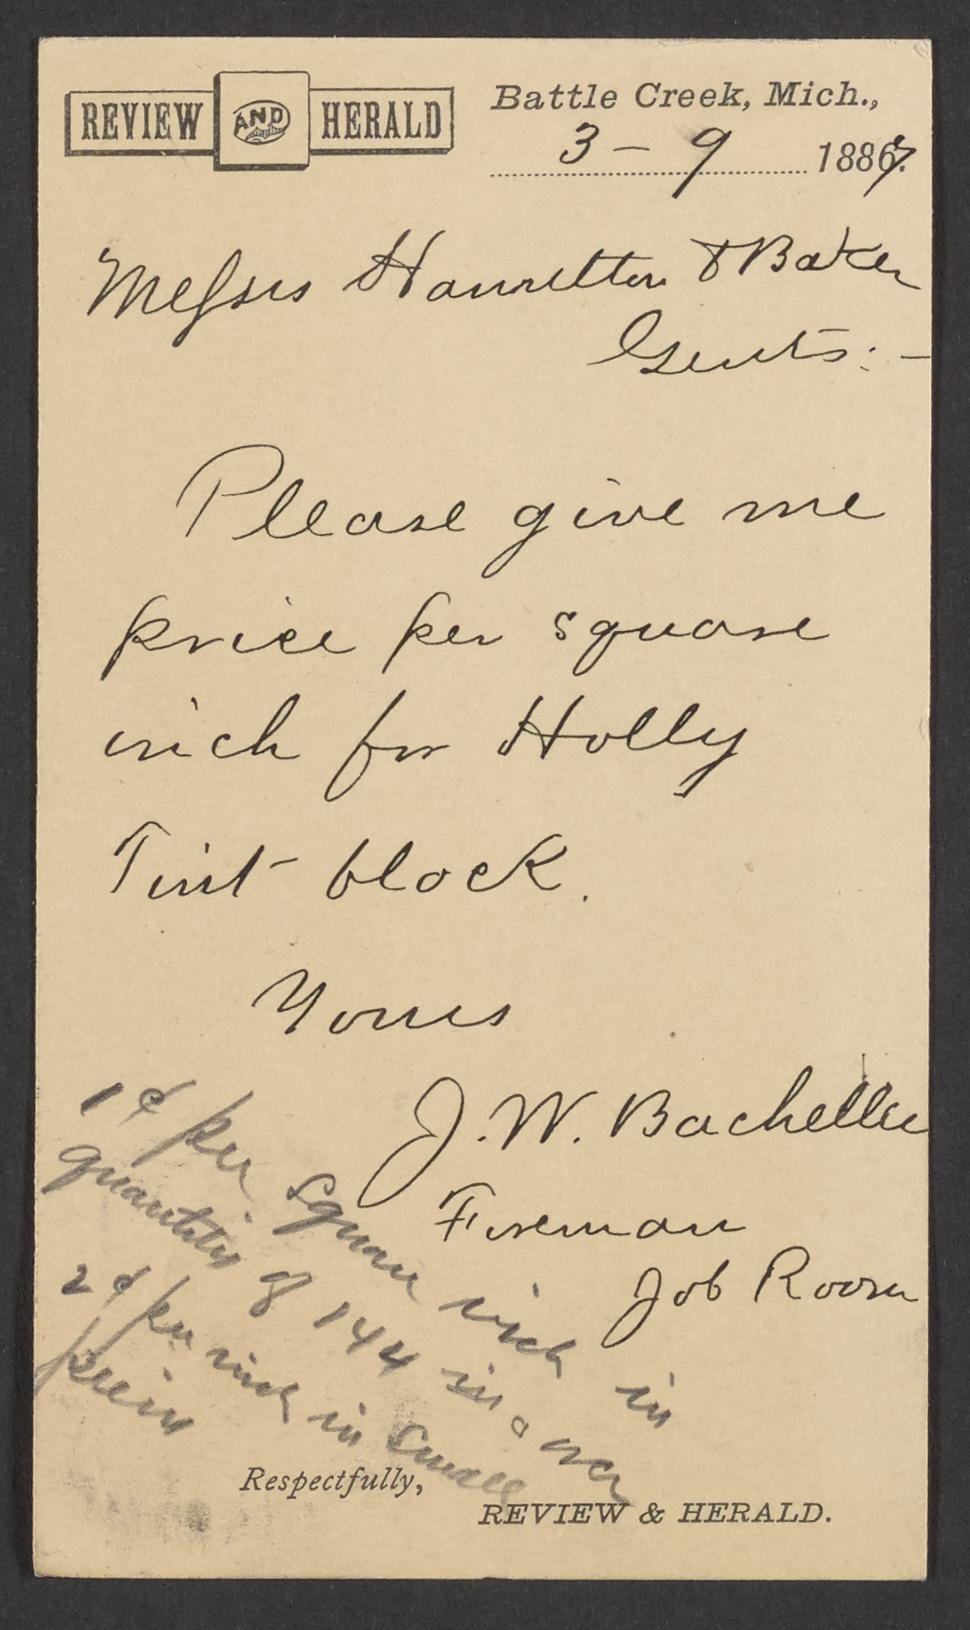 REVIEW AND HERALD
Battle Creek, Mich.,
3 - 9 1887.
Messrs Hamilton & Baker
Gents: -
Please give me
price per square
inch for Holly
Tint block.
Yours
J. W. Bacheller
Foreman
Job Room
1¢ per square inch in
quantities of 144 in. or over
2¢ per inch in small
pieces
Respectfully,
REVIEW & HERALD.